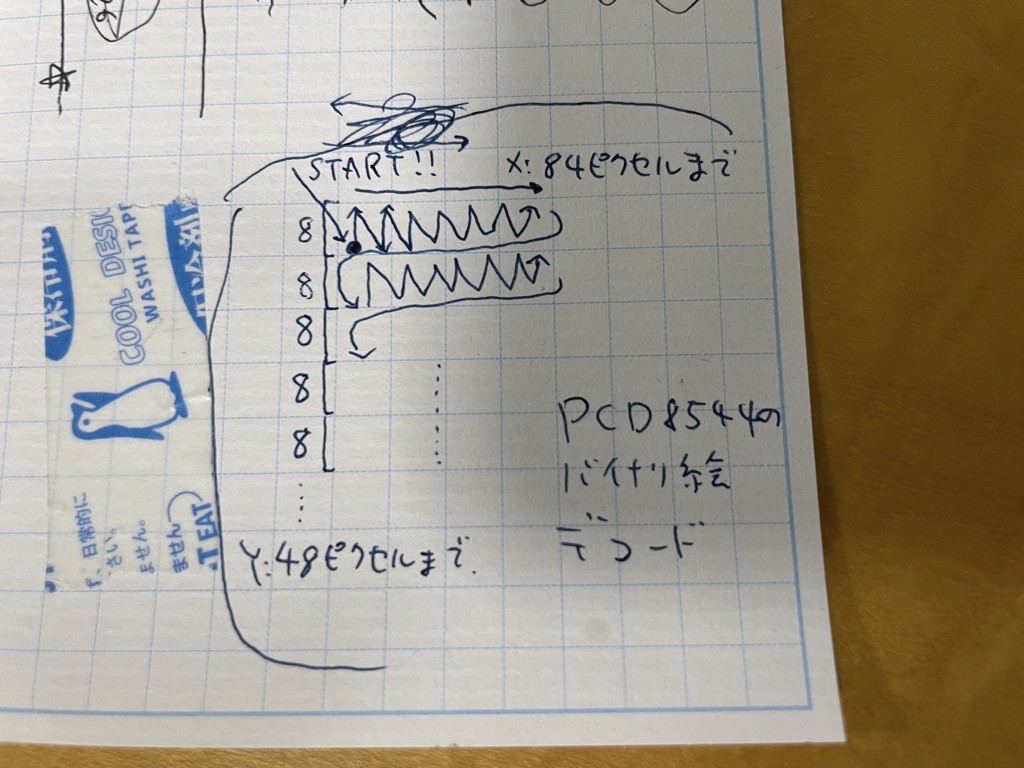 START!!
X:84ピクセルまで
8
8
8
8
8
Y:48ピクセルまで
PCD8544の
バイナリ絵
デコード
COOL DESI
WASHI TAPE
、日常的に
さい。
ません。
ません
T EAT